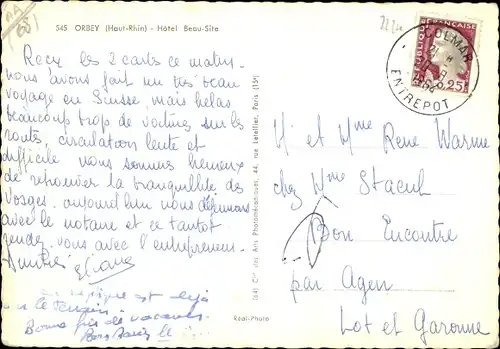 545 ORBEY (Haut-Rhin) - Hôtel Beau-Site
Reçu les 2 cartes ce matin.
nous avons fait un très beau
voyage en Suisse, mais helas
beaucoup trop de voitures sur les
routes, circulation lente et
difficile nous sommes heureux
de retrouver la tranquillité des
Vosges. aujourd'hui nous déjeunons
avec le notaire et ce tantot
rendez-vous avec l'entrepreneur.
Amitiés Eliane
est déjà
Bonne fin de vacances.
(84) Cie des Arts Photomécaniques, 44, rue Letellier, Paris (15e)
Réal-Photo
FRANÇAISE
0,25
COLMAR
ENTREPOT
M et Mme René Warme
chez Mme Stacul
Bon Encontre
par Agen
Lot et Garonne